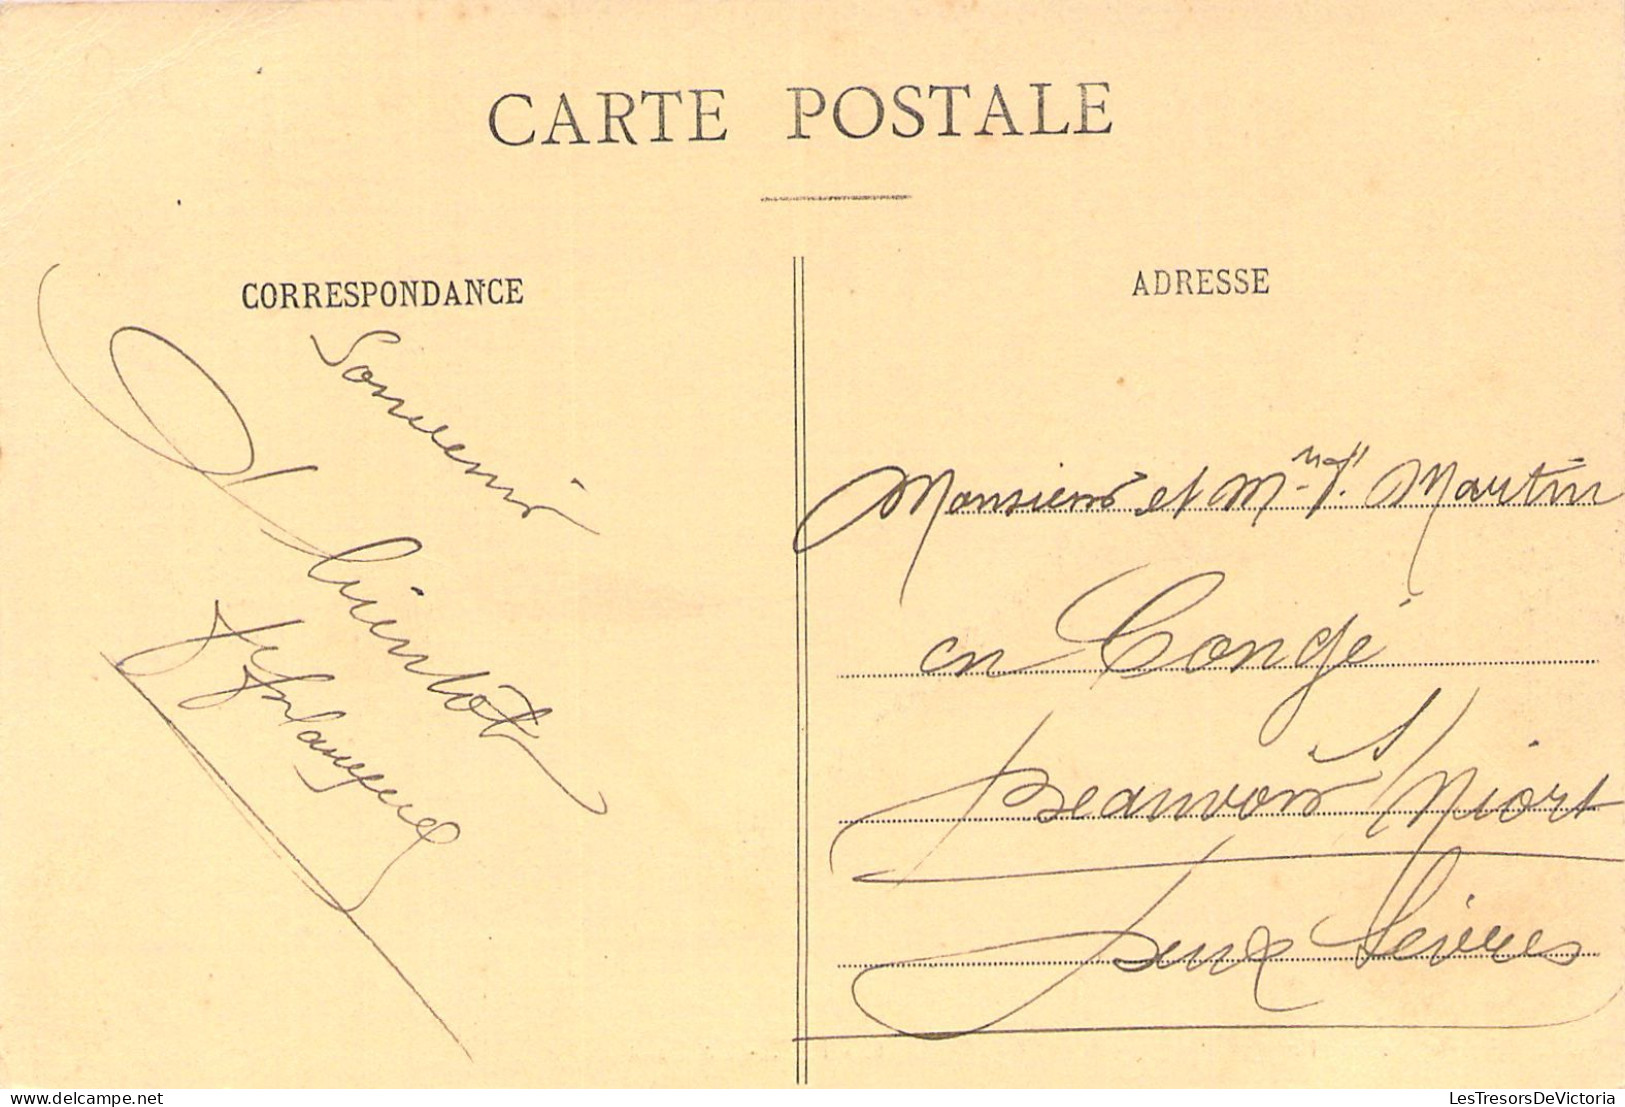 CARTE POSTALE
CORRESPONDANCE
Souvenir
ADRESSE
Monsieur et Mme Martin
en Congé
Beauvoir S/Niort
Deux Sèvres
LesTresorsDeVictoria